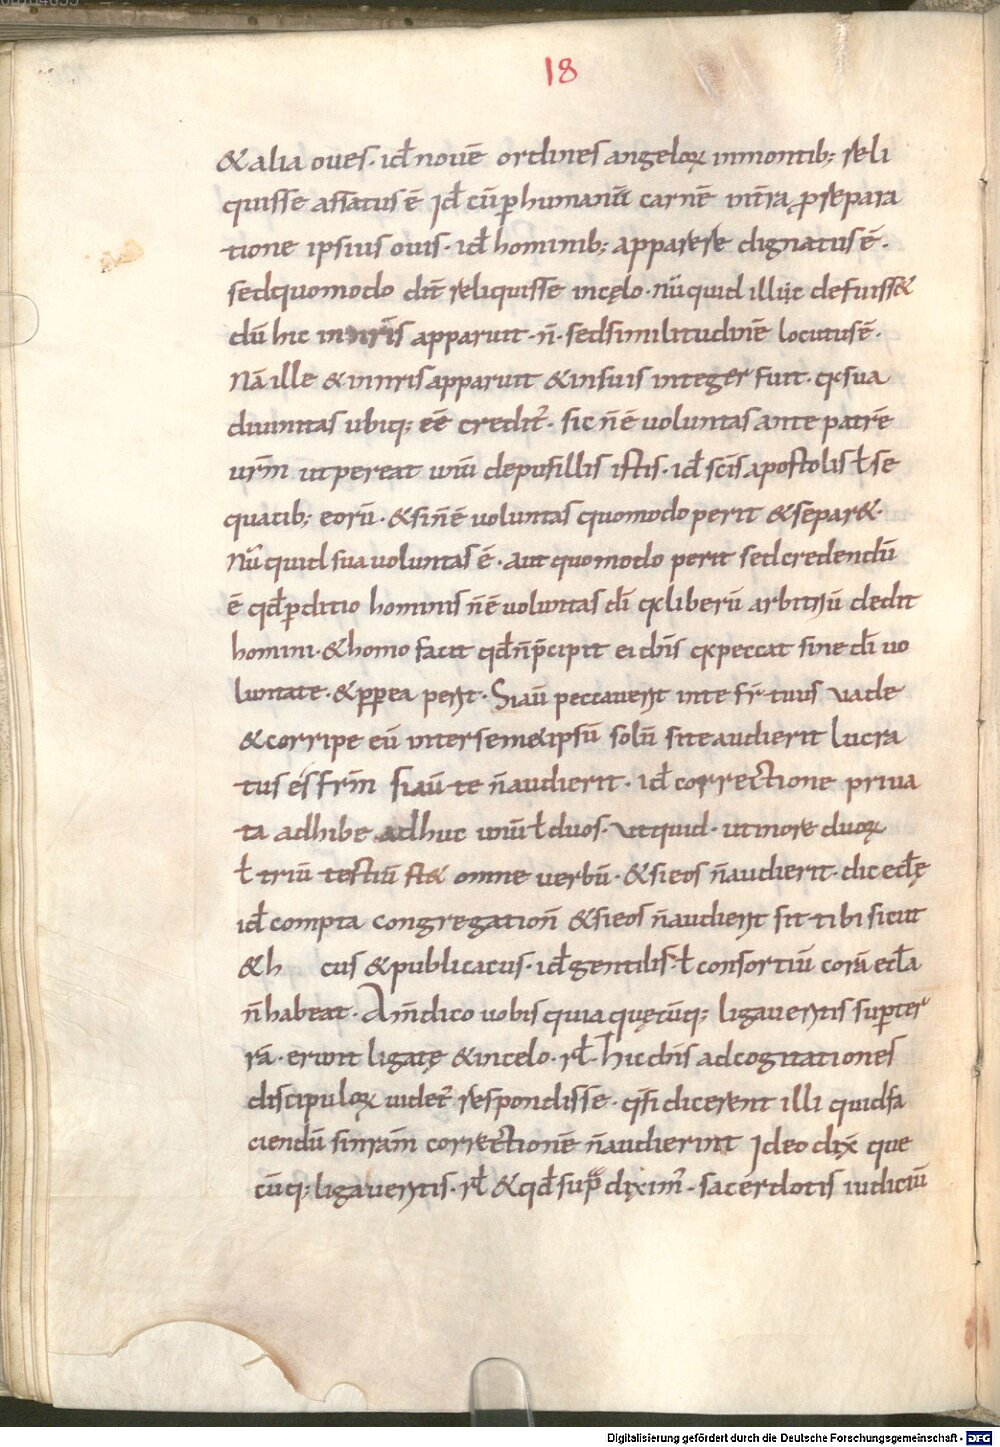 18
& alia oues· id÷ nouē ordines angeloꝝ inmontib; reli
quisse affatus ē Id÷ cū ꝑ humanū carnē intra p̄separa
tione ipsius ouis· id÷ hominib; apparere dignatus ē·
sed quomodo dic̄ reliquisse incęlo· nūquid illuc defuiss&
dū hic in nr̄is apparuit· n̄· sed similitudinē locutus ē·
Nā ille & innr̄is apparuit & insuis integer fuit· qꝛ sua
diuinitas ubiq; eē creditͬ· sic nē uoluntas ante patrē
ur̄m ut pereat unū depusillis istis· id÷ sc̄is apostolis ł se
quatib; eorū· & si nē uoluntas quomodo perit & separ&·
Nūquid sua uoluntas ē· aut quomodo perit sed credendū
ē qd̄ ꝑditio hominis nē uoluntas dī qꝛ liberū arbitriū dedit
homini· & homo facit qd̄ n̄ p̄cipit ei dn̄s qꝛ peccat sine dī uo
luntate· & ꝓpea perit· Si aū peccauerit inte fr̄ tuus uade
& corripe eū inter sem& ipsū solū site audierit lucra
tus es fr̄m si aū te n̄ audierit· id÷ correctione priua
ta adhibe adhuc unū ł duos· ut quid· ut inore duoꝝ
ł triū testiū st& omne uerbū· & sieos n̄ audierit· dic ecl̄ę
id÷ compta congregation̄ & sieos n̄ audierit sit tibi sicut
& h cus & publicacus· id÷ gentilis· ł consortiū corā ecl̄a
n̄ habeat· Am̄ dico uobis quia quęcūq; ligaueritis suꝑ ter
rā· erunt ligatę & incelo· rł· hic dn̄s ad cogitationes
discipuloꝝ uidetͬ respondisse· q̄si dicerent illi quid fa
ciendū si nr̄am correctionē n̄ audierint Ideo dix̄ que
cūq; ligaueritis· rł & qd̄ supͣ diximͬ· sacerdotis iudiciū
Digitalisierung gefördert durch die Deutsche Forschungsgemeinschaft - DFG